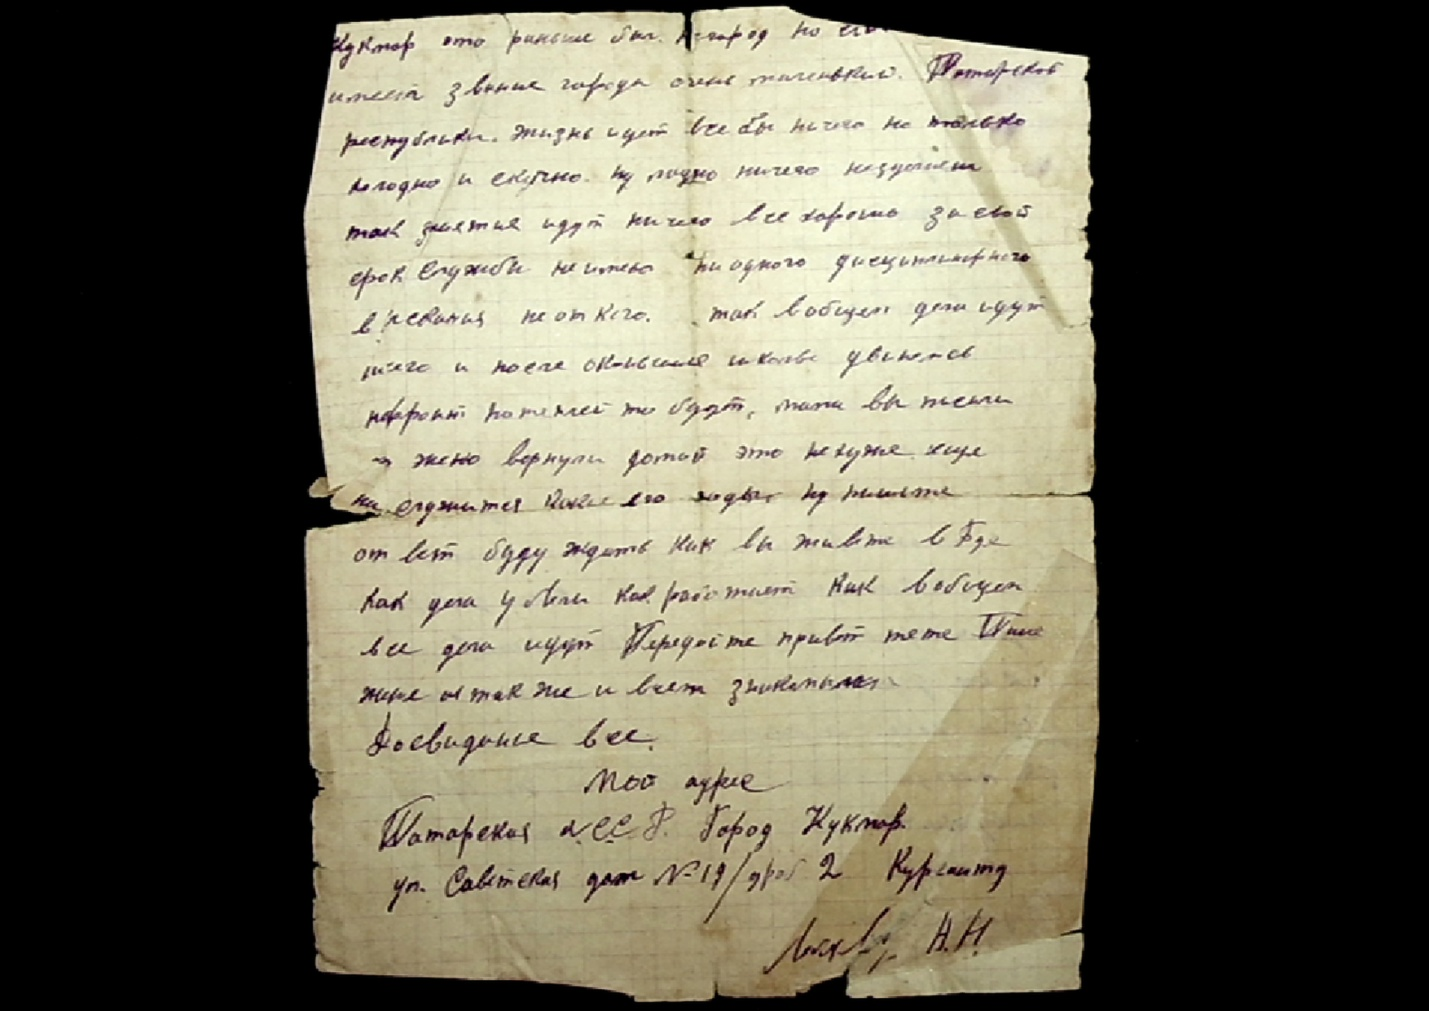 Кукмар ото раньше был. город но
имеет звание города очень маленький. Татарской
республики. Жизнь идет все бы ничего но только
холодно и скучно. ну ладно ничего
так занятия идут ничего все хорошо за свой
срок службы не имею ни одного дисциплинарного
не от кого. так вобщем дела идут
ничего и после школы
нафронт то будут, мама вы писали
вернули домой это не хуже еще
служится его годы, ну пишите
ответ буду ждать как вы живете в Где
как дела у Лели как работает как вобщем
все дела идут Передайте привет тете
так же и всем знакомым
Досвидание все.
Мой адрес
Татарская АССР. Город Кукмар.
ул. Советская дом №19/дроб 2 Курсанту
А.Н.